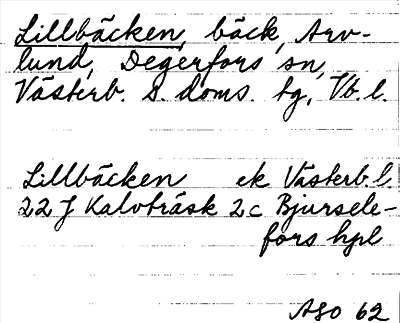 Lillbäcken, bäck, Arv-
lund, Degerfors sn,
Västerb. s. doms. tg, Vb. l.
Lillbäcken ek Västerb. l
22 J Kalvträsk 2c Bjursele-
fors hpl
ASO 62